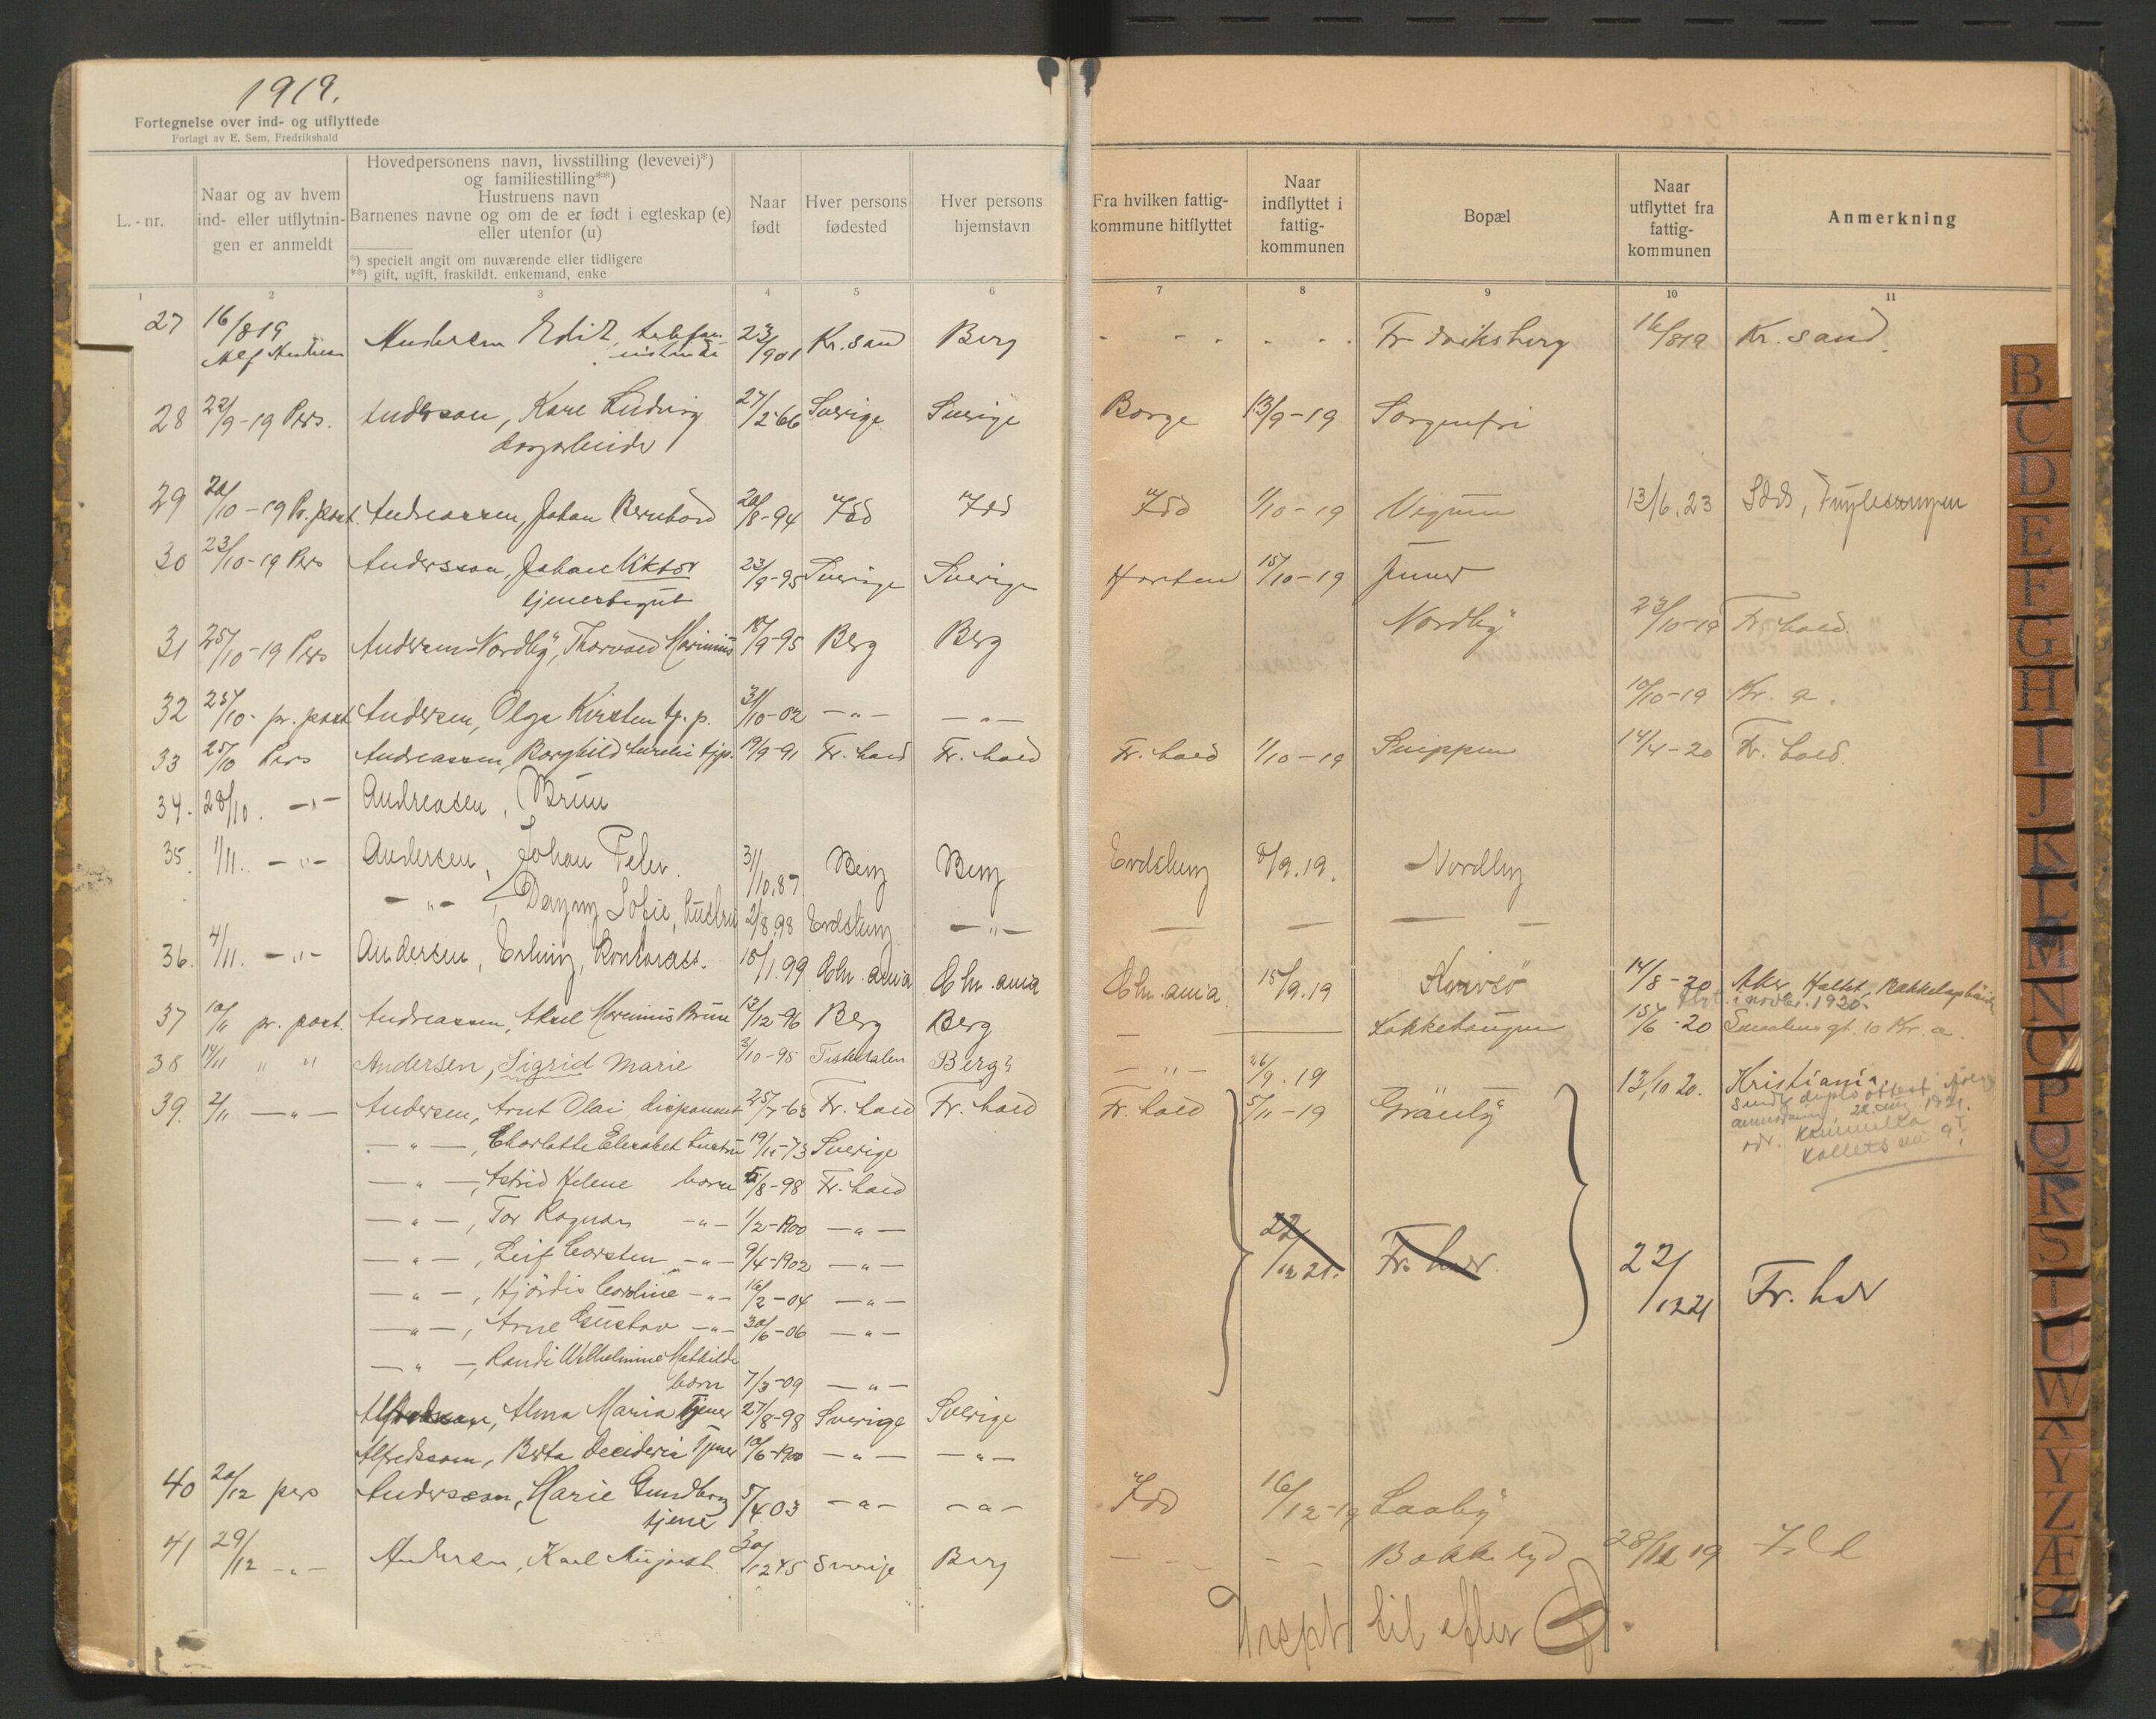 1919.
Fortegnelse over ind- og utflyttede
Forlagt av E. Sem, Fredrikshald
L.-nr.
Naar og av hvem ind- eller utflytnin-gen er anmeldt
Hovedpersonens navn, livsstilling (levevei)*)
og familiestilling**)
Hustruens navn
Barnenes navne og om de er født i egteskap (e)
eller utenfor (u)
*) specielt angit om nuværende eller tidligere
**) gift, ugift, fraskildt, enkemand, enke
Naar født
Hver persons fødested
Hver persons hjemstavn
Fra hvilken fattig-kommune hitflyttet
Naar indflyttet i fattig-kommunen
Bopæl
Naar utflyttet fra fattig-kommunen
Anmerkning
1 2 3 4 5 6 7 8 9 10 11
27 16/8 19 Andersen Edit, 23/1 901 Kr. sand Berg Fredriksberg 16/8 19 Kr. sand
Alf Andersen
28 22/9-19 Pers. Andersson, Karl Ludvig 27/2 66 Sverige Sverige Borge 13/9-19 Sorgenfri
dagarbeider
29 20/10-19 Pr. post. Andreassen, Johan Bernhard 20/8-94 Idd Idd Idd 1/10-19 13/6.23 Idd,
30 23/10-19 Pers Andersson, Johan Viktor 23/9-95 Sverige Sverige Horten 15/10-19
tjenestegut
31 25/10-19 Pers Andersen-Nordby, Thorvald Marinius 18/9-95 Berg Berg Nordby 23/10-19 Fr. hald.
32 25/10- pr. post Andersen, Olga Kirsten tj. p. 31/10-02 -"- -"- 10/10-19 Kr. a.
33 25/10 Pers Andreassen, Borghild tjp. 19/9-91 Fr. hald Fr. hald Fr. hald 1/10-19 14/4-20 Fr. hald.
34. 28/10. -"- Andreasen, Brun
35. 1/11. -"- Andersen, Johan Peter. 31/10.87 Berg Berg Eidsberg 8/9.19. Nordby
-"-, Dagny Sofie, hustru 2/8.98 Eidsberg -"-
36. 4/11. -"- Andersen, Erling, Kontorass. 15/1.99 Chr. ania Chr. ania Chr. ania 15/9.19 14/8-20 Aker,
37 10/11 pr. post. Andreassen, Aksel Marinius Brun 13/12-96 Berg Berg 15/6-20 gt. 10 Kr. a.
38 14/11 " " Andersen, Sigrid Marie 3/10-95 Tistedalen Berg? -"- 26/9.19 13/10 20. Kristiania
39. 2/11 -"- Andersen, Arnt Olai, disponent 25/7-63 Fr. hald Fr. hald Fr. hald 5/11-19
-"-, Charlotte Elisabet hustru 19/11-73 Sverige
-"-, Astrid Helene barn 5/8-98 Fr. hald
-"-, Tor Ragnar -"- 1/2-1900 -"-
-"-, Leif Carsten -"- 9/4-1902 -"- 22/12 21. Fr. hald 22/12 21 Fr. hald
-"-, Hjördis Caroline -"- 16/2-04 -"-
-"-, Arne Gustav -"- 30/6-06 -"-
-"-, Randi Wilhelmine Mathilde
barn 7/3-09 -"-
Alfredsson, Alma Maria Tjener 27/8-98 Sverige Sverige
Alfredsson, Berta Decideria Tjener 10/6-1900 -"- -"-
40 20/12 pers Andersson, Marie Gundborg 5/4 03 -"- -"- Idd 16/12-19
tjener
41 29/12 -"- Andersen, Karl August. 30/12 45 Sverige Berg 28/12 19 Idd
til efter
B C D E F G H I J K L M N O P Q R S T U W X Y Z Æ Ø